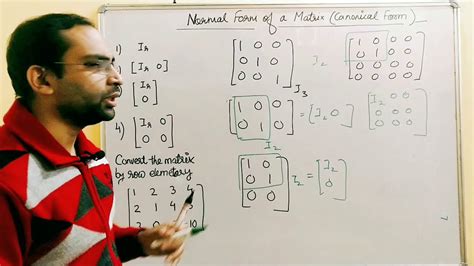 Normal Form of a Matrix (Canonical Form)
1) [Ir]
2) [Ir 0]
3) [Ir
0]
4) [Ir 0
0 0]
Convert the matrix
by row elementary
[1 2 3 4
2 1 4
[1 0 0
0 1 0
0 0 1]
I3
[1 0 0
0 1 0] = [I2 0]
[1 0
0 1
0 0] I2 = [I2
0]
I2 [1 0 0 0
0 1 0 0
0 0 0 0
0 0 0 0]
[I2 0 0
0 0 0
0 0 0]